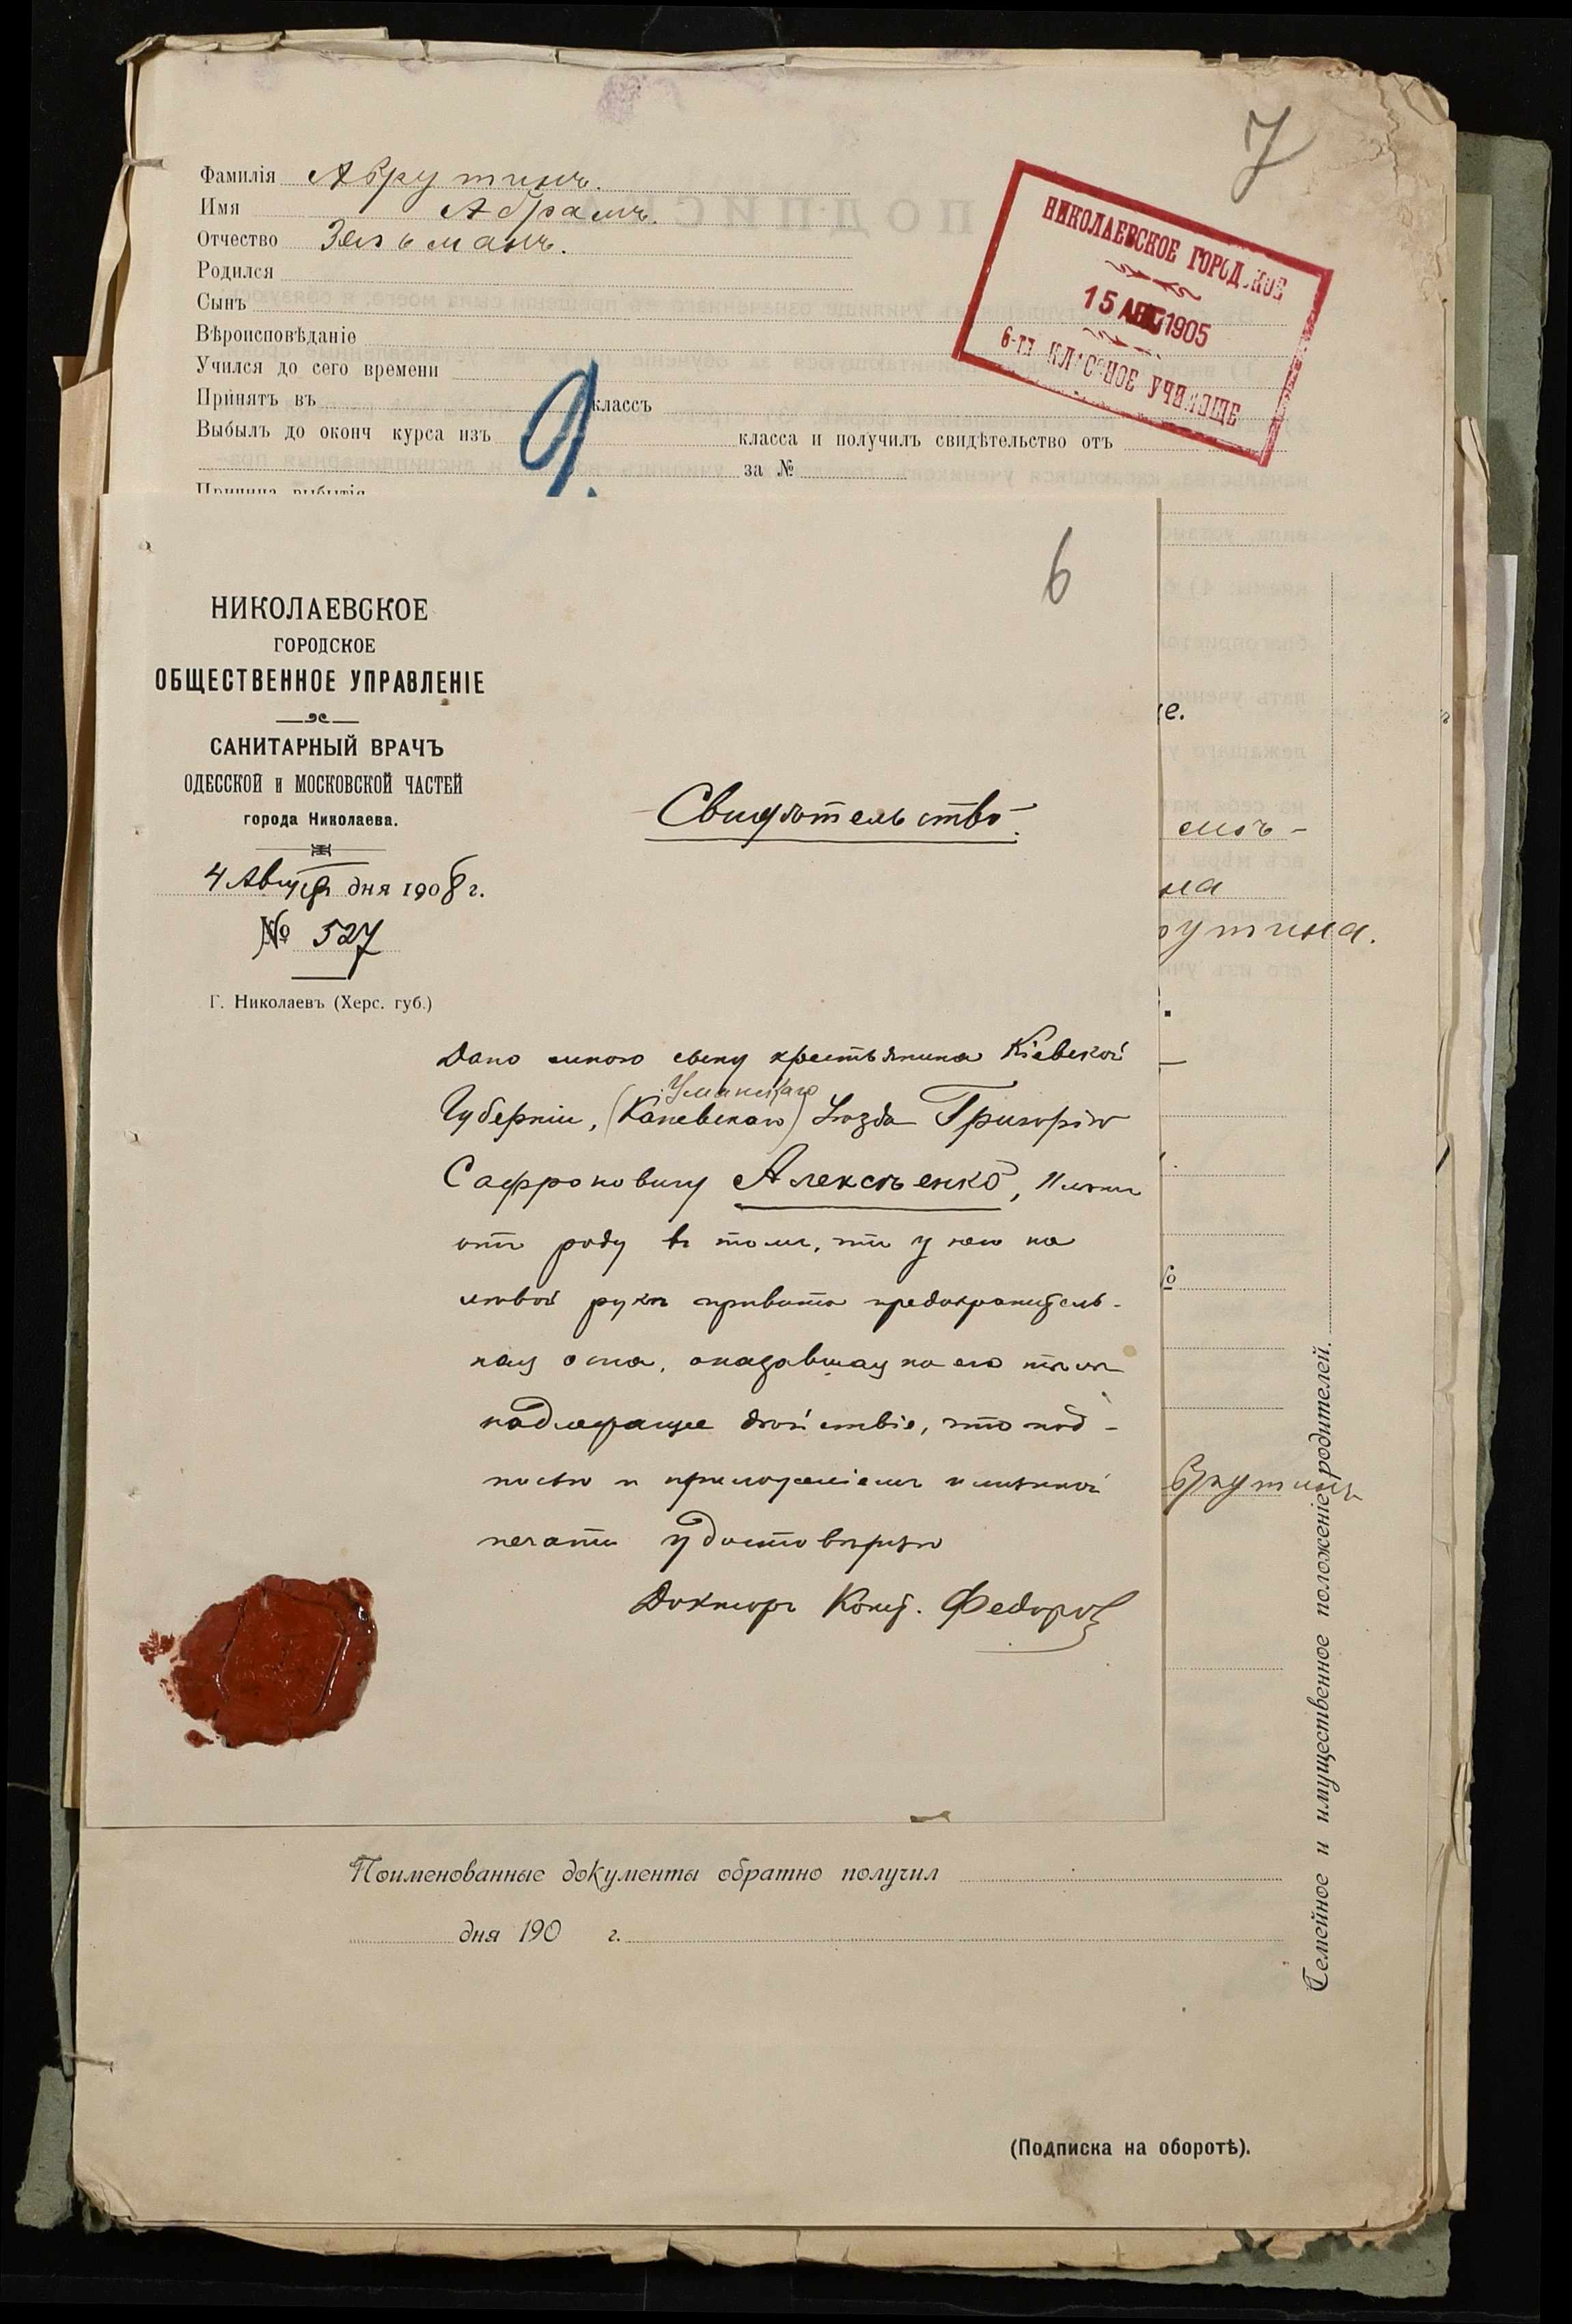 7
Фамилія Абрутинъ.
Имя Абрамъ.
Отчество Зельманъ.
Родился
Сынъ
Вѣроисповѣданіе
Учился до сего времени
Принятъ въ классъ
Выбылъ до оконч курса изъ класса и получилъ свидѣтельство отъ
за №
Причина выбытія
НИКОЛАЕВСКОЕ ГОРОДСКОЕ
15 АВГ 1905
6-ТИ КЛАССНОЕ УЧИЛИЩЕ
9.
6
НИКОЛАЕВСКОЕ
ГОРОДСКОЕ
ОБЩЕСТВЕННОЕ УПРАВЛЕНІЕ
САНИТАРНЫЙ ВРАЧЪ
ОДЕССКОЙ и МОСКОВСКОЙ ЧАСТЕЙ
города Николаева.
4 Августа дня 1908 г.
№ 527
Г. Николаевъ (Херс. губ.)
Свидѣтельство.
Дано мною сыну крестьянина Кіевской
Уманскаго
Губерніи, (Каневскаго) Уѣзда Григорію
Сафроновичу Алексѣенко, 11 лѣтъ
отъ роду въ томъ, что у него на
лѣвой рукѣ привита предохранитель-
ная оспа, оказавшая на его тѣлѣ
надлежащее дѣйствіе, что под-
писью и приложеніемъ именной
печати удостовѣряю
Докторъ Конст. Федоровъ
е.
емъ-
на
рутина.
брутинъ
Семейное и имущественное положеніе родителей.
Поименованные документы обратно получил
дня 190 г.
(Подписка на оборотѣ).